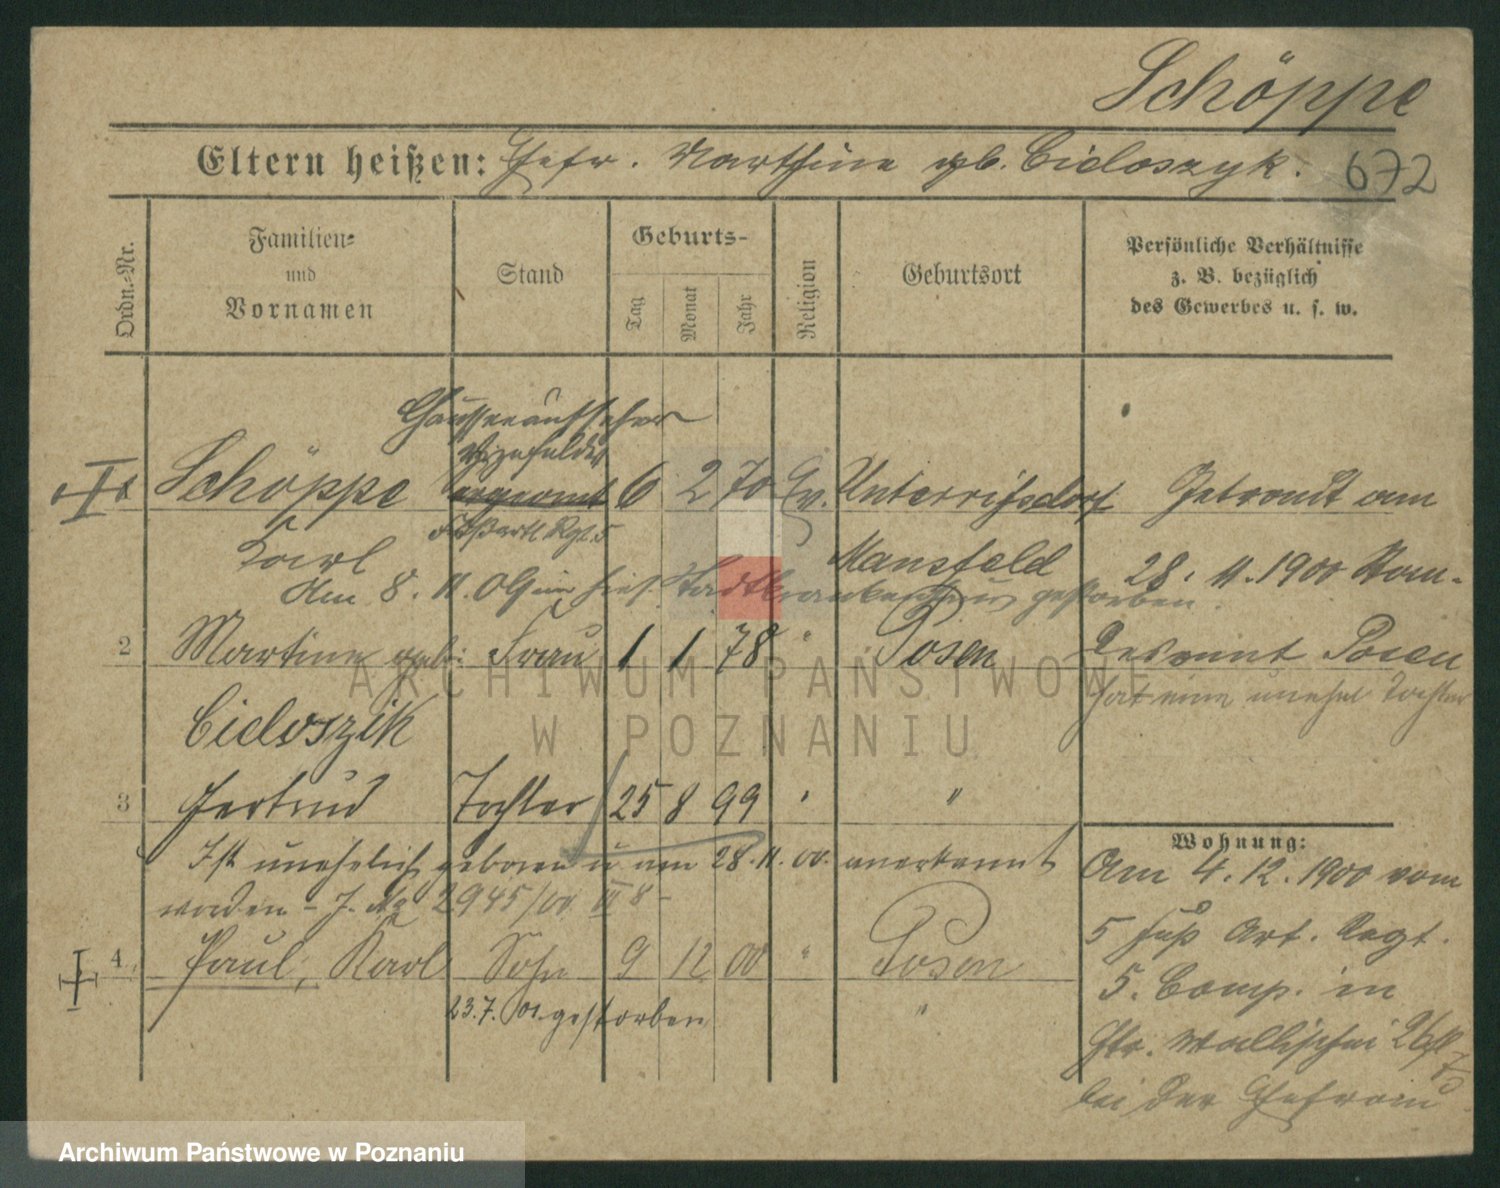 Schöppe
Eltern heißen: Ehefr. Marthine geb. Cieloszyk.
672
Ordn.-Nr.
Familien-
und
Vornamen
Stand
Geburts-
Tag
Monat
Jahr
Religion
Geburtsort
Persönliche Verhältnisse
z. B. bezüglich
des Gewerbes u. s. w.
Chausseeaufseher
Vizefeldw
Schöppe Sergeant 6 2 70 Ev. Unterrißdorf Getraut am
Fußartl Rgt. 5
Karl Mansfeld 28. 11. 1900 Stan-
Am 8. 11. 01 im hies. Stadtkrankenhaus gestorben.
2 Martine geb. Frau 1 1 78 " Posen desamt Posen
hat eine unehel Tochter
Cieloszik
3 Gertrud Tochter 25 8 99 " "
Ist unehelich geboren u am 28. 11. 00. anerkannt
worden - J. No 2945/00 VI 8 -
4 Paul, Karl Sohn 9 12 00 " Posen
23. 7. 01. gestorben "
Wohnung:
Am 4. 12. 1900 vom
5 Fuß Art. Regt.
5. Comp. in
Gr. Wallischei 26
bei der Ehefrau
ARCHIWUM PAŃSTWOWE
W POZNANIU
Archiwum Państwowe w Poznaniu